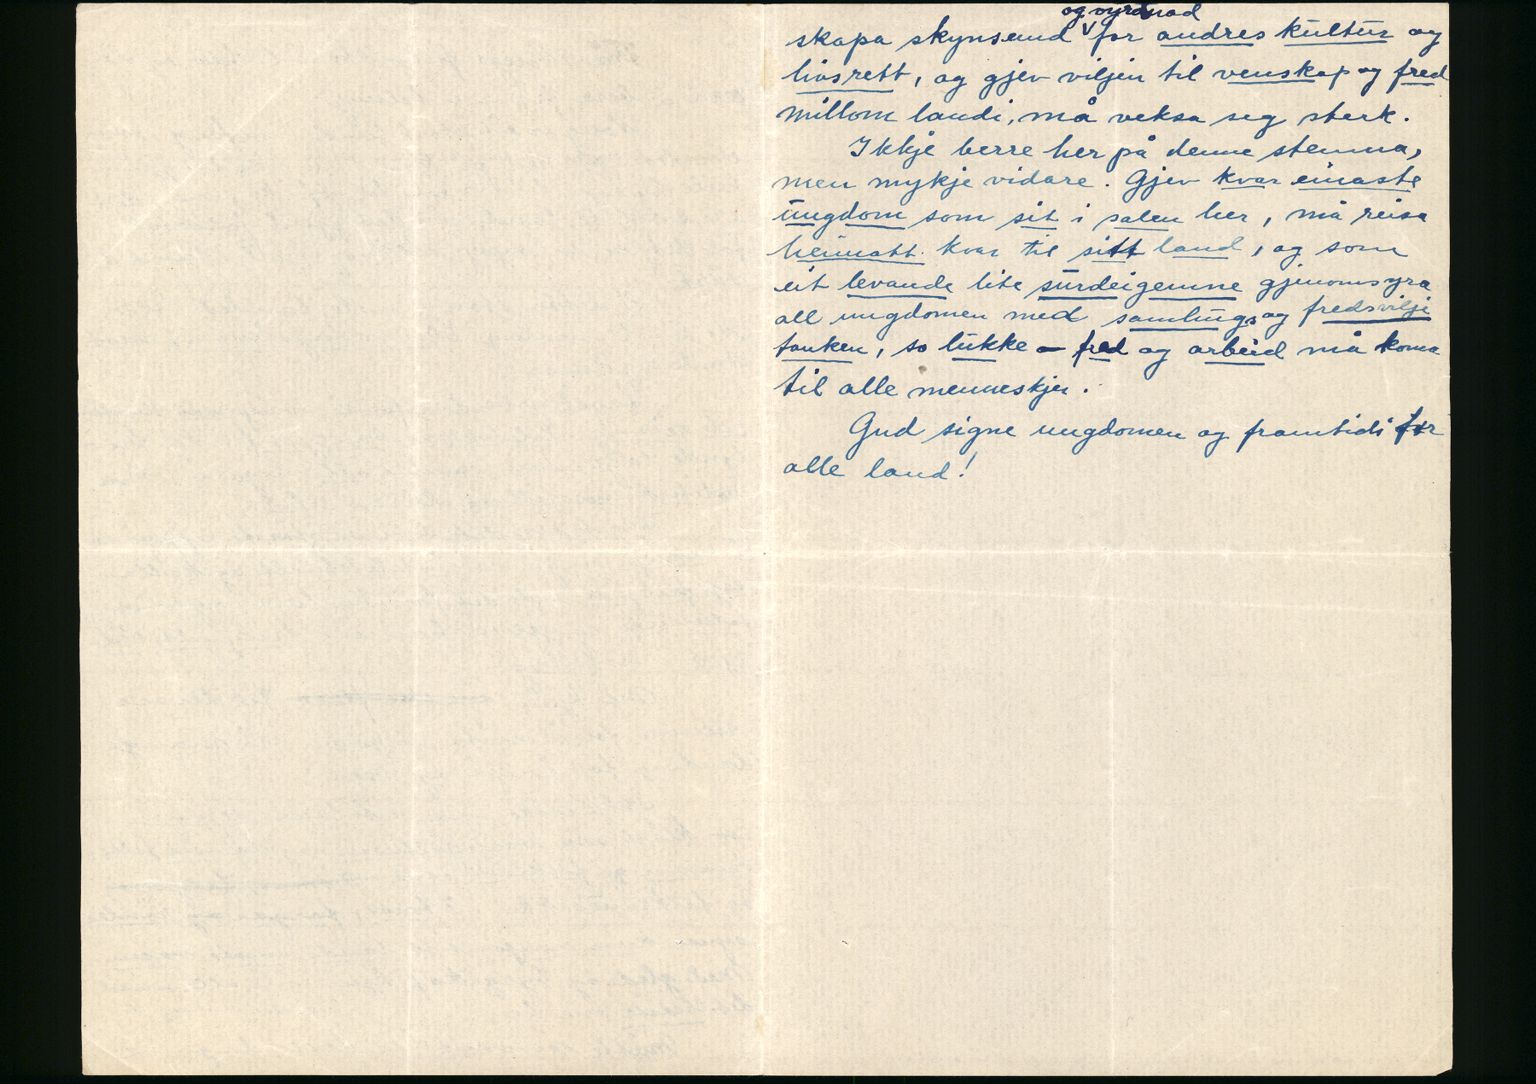 og vyrdnad
skapa skynsemd for andres kultur og
livsrett, og gjev viljen til venskap og fred
millom landi, må veksa seg sterk.
Ikkje berre her på denne stemna,
men mykje vidare. Gjev kvar einaste
ungdom som sit i salen her, må reisa
heimatt kvar til sitt land, og som
eit levande lite surdeigemne gjenomsyra
all ungdomen med samlings og fredsvilje
tanken, so lukke - fred og arbeid må koma
til alle menneskjer.
Gud signe ungdomen og framtidi for
alle land!